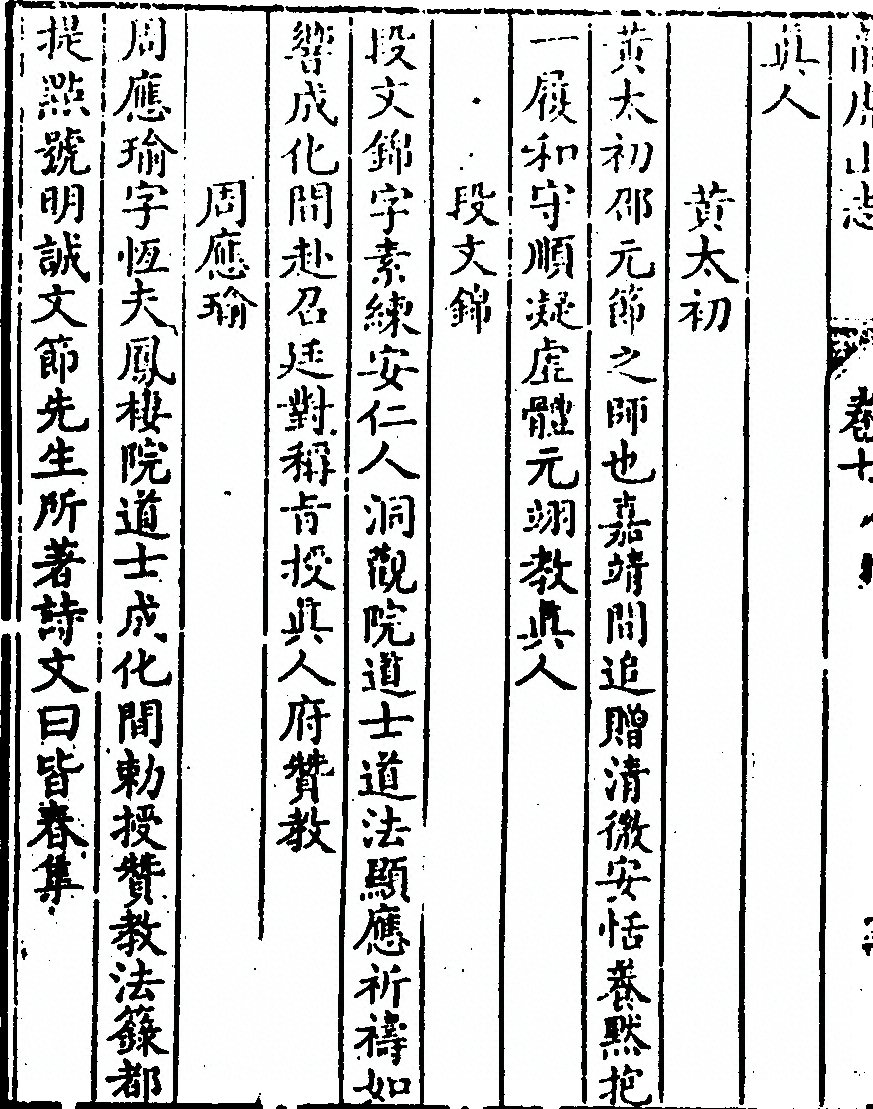 龍虎山志 卷十
真人
黃太初
黃太初邵元節之師也嘉靖間追贈清微安恬養默抱
一履和守順凝虛體元翊教真人
段文錦
段文錦字素練安仁人洞觀院道士道法顯應祈禱如
響成化間赴召廷對稱旨授真人府贊教
周應瑜
周應瑜字恆夫鳳棲院道士成化間勅授贊教法籙都
提點號明誠文節先生所著詩文曰皆春集